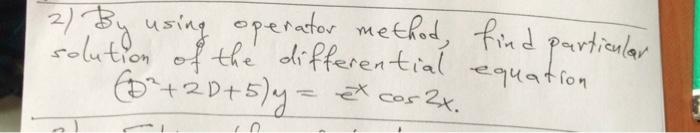 2) By using operator method, find particular
solution of the differential equation
(D²+2D+5)y = e^x cos 2x.